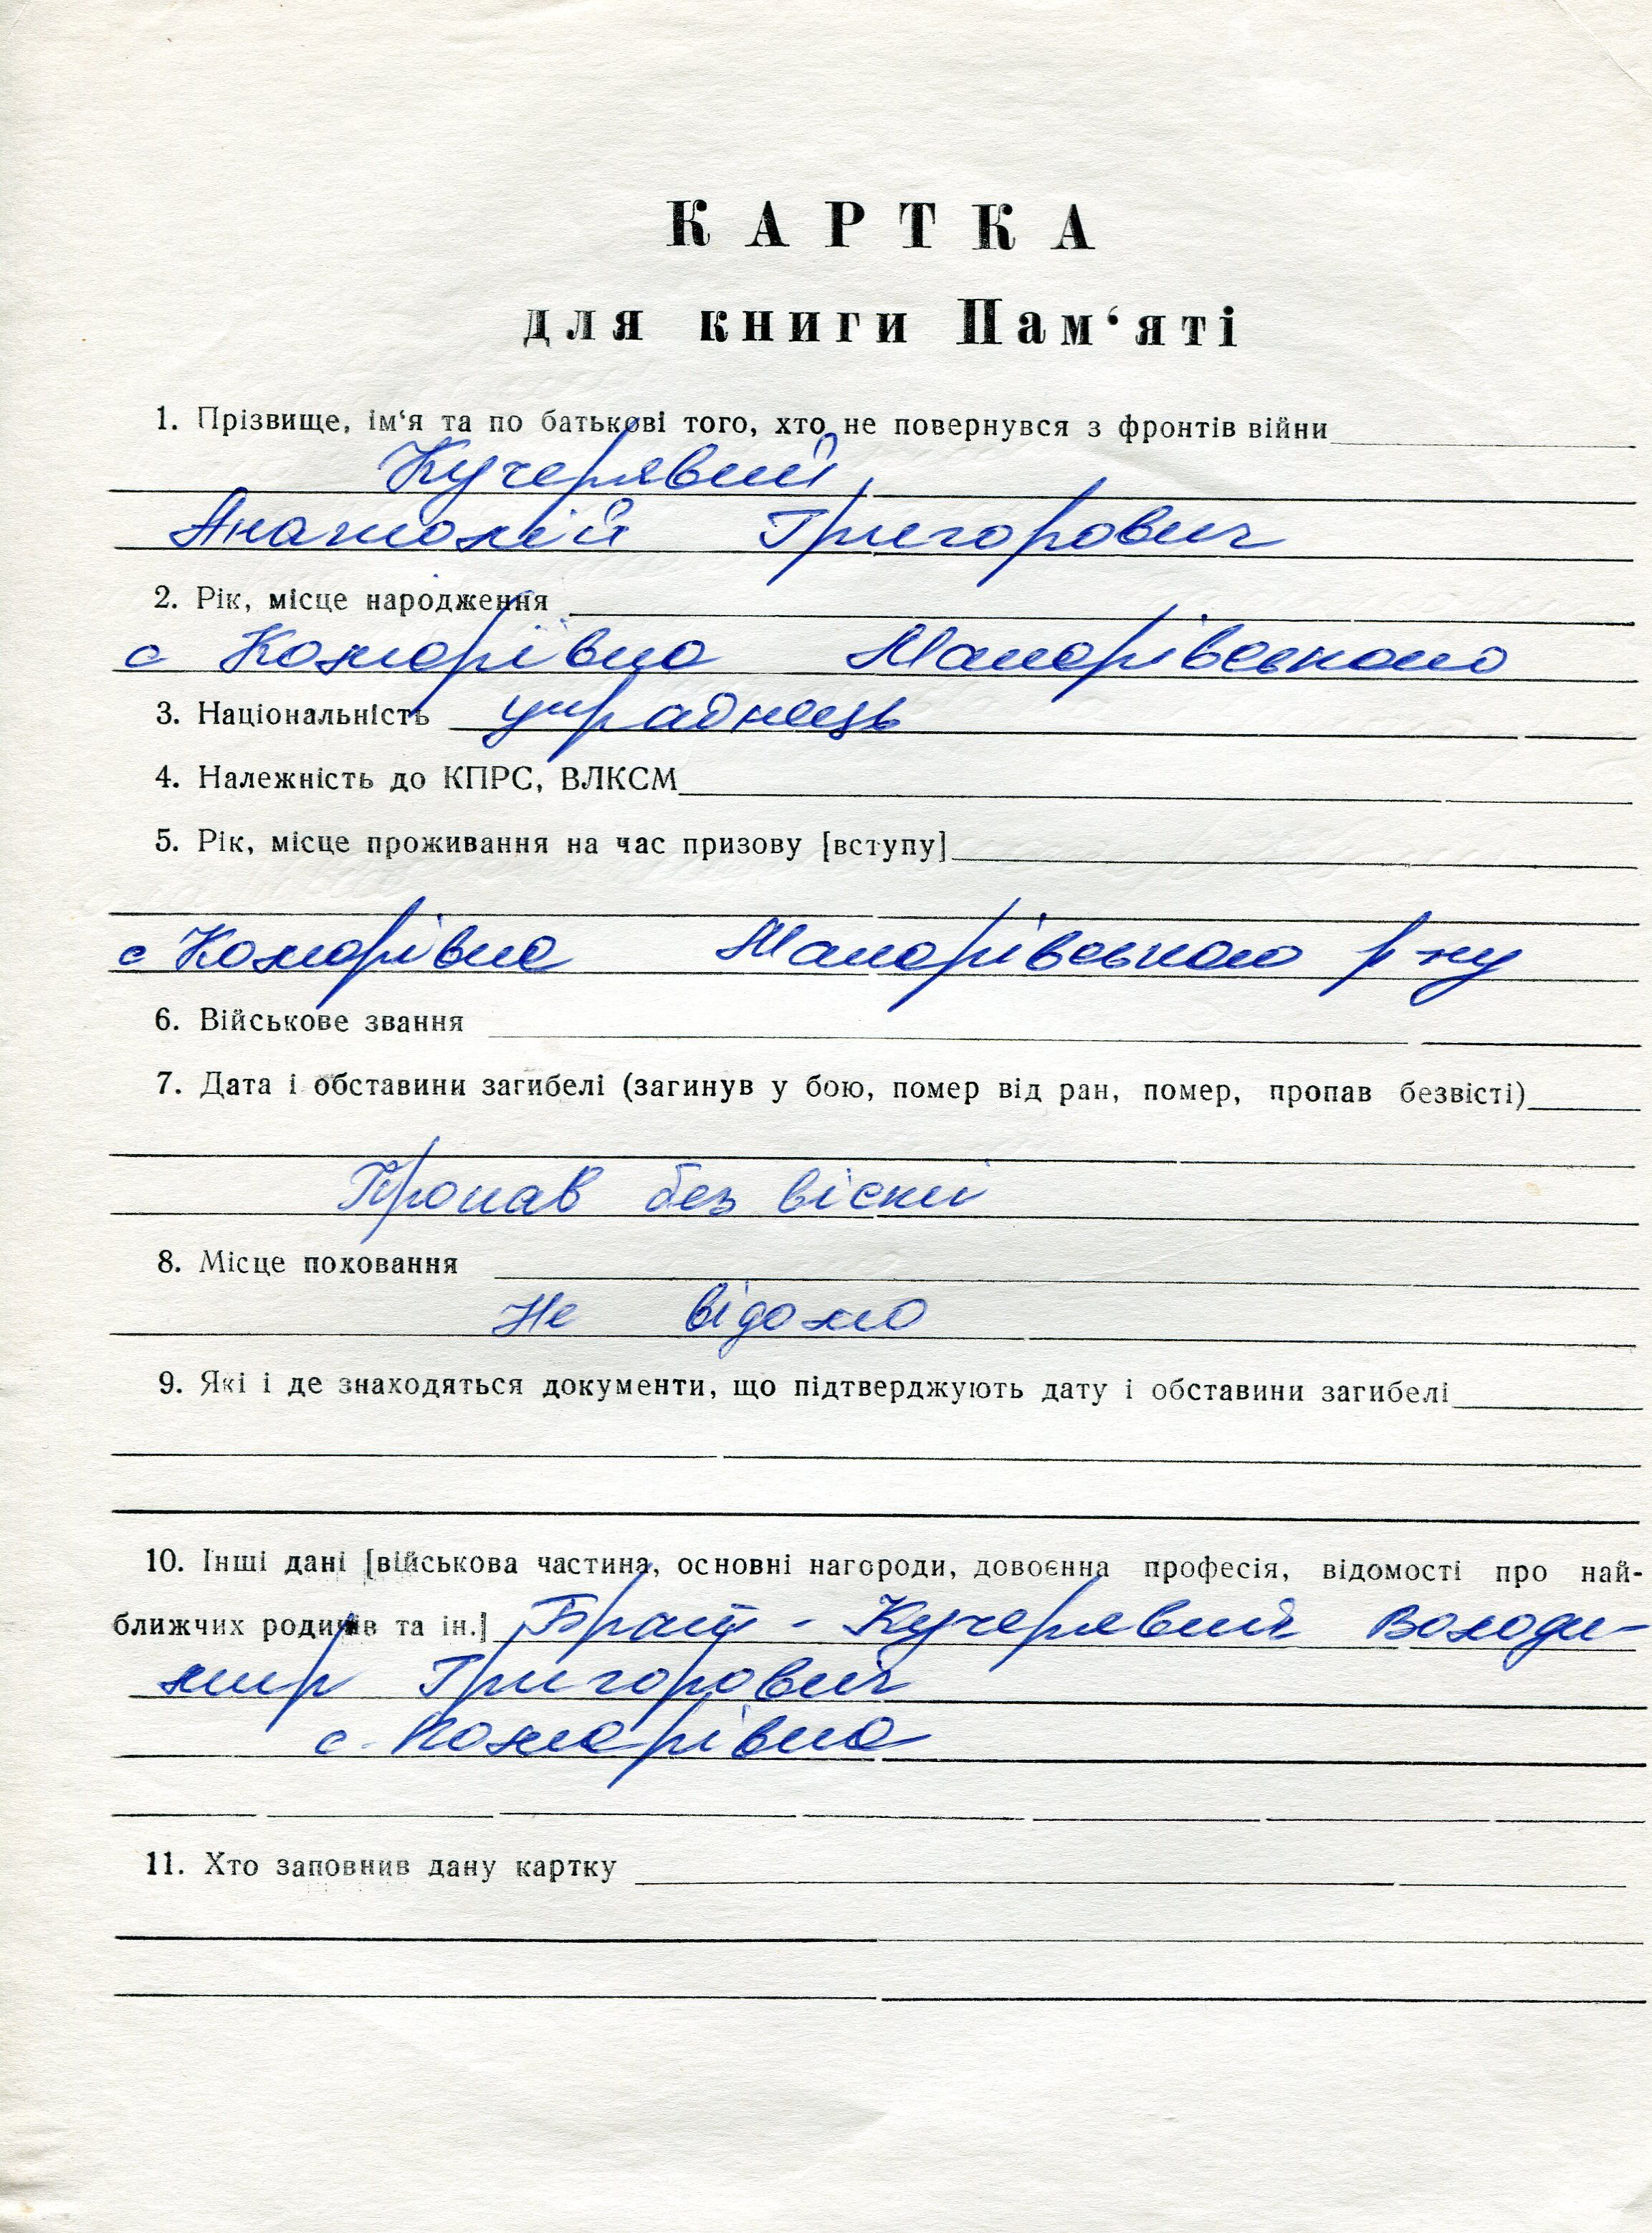 КАРТКА
для книги Пам‘яті
1. Прізвище, ім‘я та по батькові того, хто не повернувся з фронтів війни
Кучерявий
Анатолій Григорович
2. Рік, місце народження
с Комарівка Макарівського
3. Національність українець
4. Належність до КПРС, ВЛКСМ
5. Рік, місце проживання на час призову [вступу]
с Комарівка Макарівського р-ну
6. Військове звання
7. Дата і обставини загибелі (загинув у бою, помер від ран, помер, пропав безвісті)
Пропав без вісти
8. Місце поховання
Не відомо
9. Які і де знаходяться документи, що підтверджують дату і обставини загибелі
10. Інші дані [військова частина, основні нагороди, довоєнна професія, відомості про най-
ближчих родичів та ін.] Брат - Кучерявий Володи-
мир Григорович
с. Комарівка
11. Хто заповнив дану картку